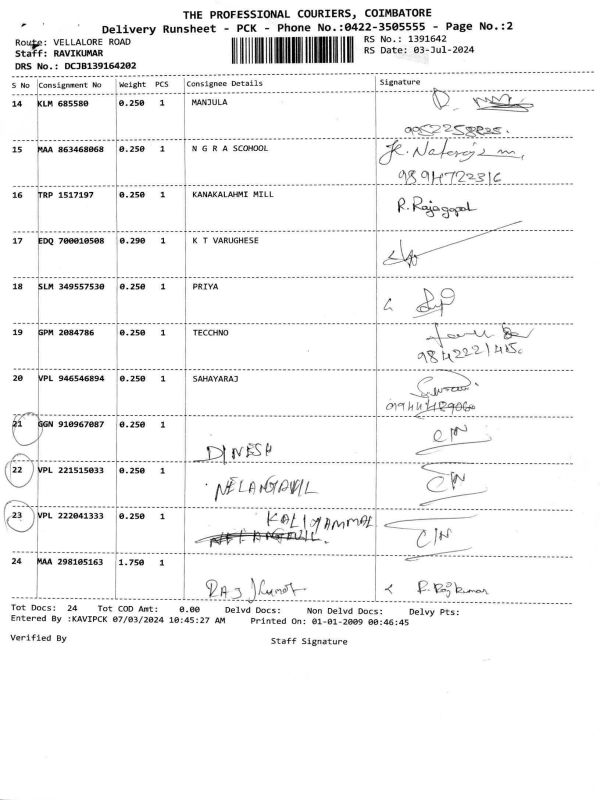 THE PROFESSIONAL COURIERS, COIMBATORE
Delivery Runsheet - PCK - Phone No.:0422-3505555 - Page No.:2
Route: VELLALORE ROAD RS No.: 1391642
Staff: RAVIKUMAR RS Date: 03-Jul-2024
DRS No.: DCJB139164202
S No Consignment No Weight PCS Consignee Details Signature
14 KLM 685580 0.250 1 MANJULA
15 MAA 863468068 0.250 1 N G R A SCOHOOL
9894722316
16 TRP 1517197 0.250 1 KANAKALAHMI MILL R. Rajagopal
17 EDQ 700010508 0.290 1 K T VARUGHESE
18 SLM 349557530 0.250 1 PRIYA
19 GPM 2084786 0.250 1 TECCHNO
20 VPL 946546894 0.250 1 SAHAYARAJ
21 GGN 910967087 0.250 1 DINESH C/N
22 VPL 221515033 0.250 1 C/N
23 VPL 222041333 0.250 1 KALIYAMMAL C/N
24 MAA 298105163 1.750 1 RAJ Kumar R. Rajkumar
Tot Docs: 24 Tot COD Amt: 0.00 Delvd Docs: Non Delvd Docs: Delvy Pts:
Entered By :KAVIPCK 07/03/2024 10:45:27 AM Printed On: 01-01-2009 00:46:45
Verified By Staff Signature